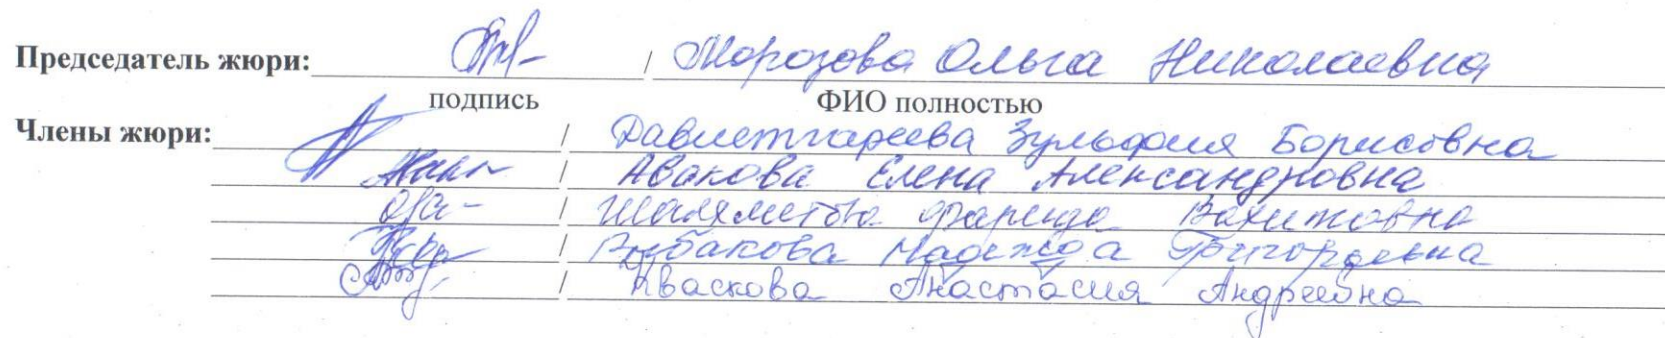 Председатель жюри: / Морозова Ольга Николаевна
подпись ФИО полностью
Члены жюри: / Давлетгареева Зульфия Борисовна
/ Авакова Елена Александровна
/ Шаяхметова Фарида Вахитовна
/ Рыбакова Надежда Григорьевна
/ Кваскова Анастасия Андреевна